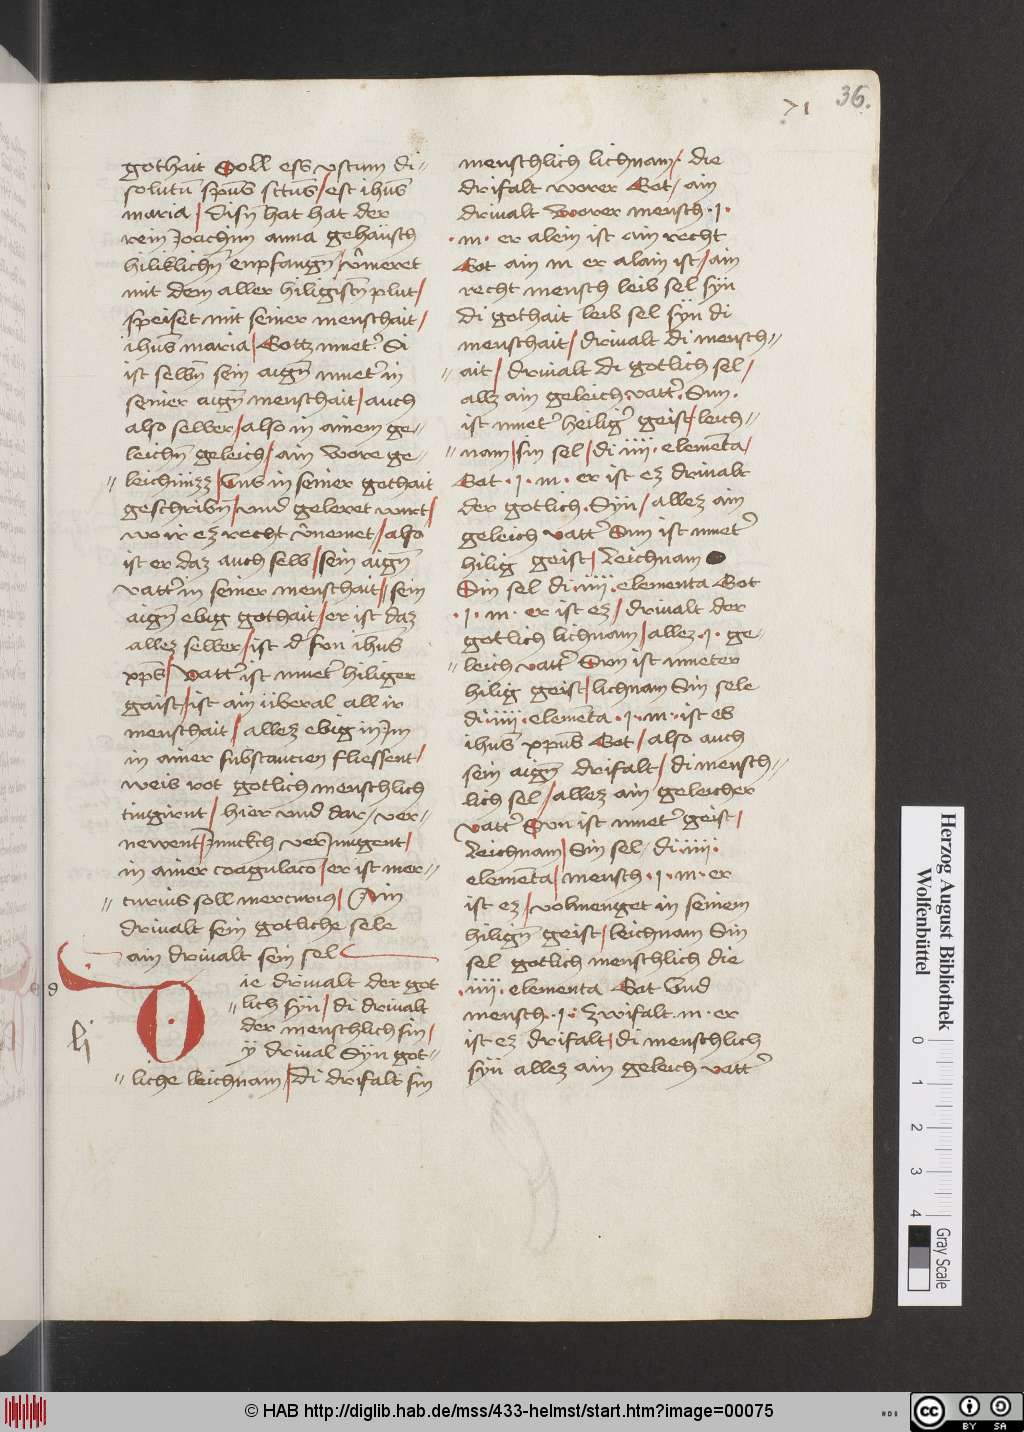 36.
71
gothait Soll ess ustum di=
solutu spus sctus / est ihus
maria / disn hat hat der
rein Joachim anna gehaüsch
hiliklichn enpfangn / v̄meret
mit dem aller hiligistn plut /
speiset mit seiner menschait /
ihus maria / Gottz muet Si
ist selbn sein aign muet in
seiner aign menschait / auch
also selber / also in ainem ge=
leichn geleich / ain wore ge=
leichnizz / Uns in seiner gothait
geschribn / und geleret wirt /
wo ir ez recht v̄nemet / also
ist er daz auch selb / sein aign
vatt in seiner menschait / sein
aign ebig gothait / er ist daz
allez selber / ist d sun ihus
xps / Vatt ist muet hiliger
gaist / ist ain überal all ir
menschait / allez ebig in Im
in ainer substancien fliessent /
weis rot gotlich menschlich
tingirnt / hier und dar / ver=
newent /
in ainer coagulaco / er ist mer=
curius soll mercurius / Ain
drivalt sein gotliche sele
ain drivalt sein sel
Die drivalt der got
lich syn / di drivalt
der menschlich sin /
ÿ drival Syn got=
liche leichnam / di drifalt sin
menschlich lichnam / die
drifalt worer Got / ain
drivalt worer mensch · I ·
· m · er alein ist ain recht
Got ain m er alain ist / ain
recht mensch leib sel syn
di gothait leib sel syn di
menschait / drivalt di mensch=
ait / drivalt di gotlich sel /
allz ain geleich vatt. Sun.
ist muet heilig geist / leich=
nam / sin sel / di iiii · elementa /
Got · I · m · er ist ez drivalt
der gotlich. Syn / allez ain
geleich vatt Sun ist muet
hilig geist / Leichnam
Sin sel di · iiii · elementa Got
· I · m · er ist ez / drivalt der
gotlich lichnam / allez · I · ge=
leich vatt Sun ist mueter
hilig geist / lichnam Sin sele
di · iiii · elementa · I · m · ist es
ihus xpus Got / also auch
sein aign drifalt / di mensch=
lich sel / allez ain geleicher
vatt Sun ist muet geist /
Leichnam / Sin sel di · iiii ·
elementa / mensch · I · m · er
ist ez / volmenget in seinem
hilign geist / leichnam Sin
sel gotlich menschlich die
· iiii · elementa Got Und
mensch · I · zwifalt · m · er
ist ez drifalt / di menschlich
syn allez ain geleich vatt
Herzog August Bibliothek
Wolfenbüttel
0 1 2 3 4
Gray Scale
© HAB http://diglib.hab.de/mss/433-helmst/start.htm?image=00075
HAB
cc BY SA